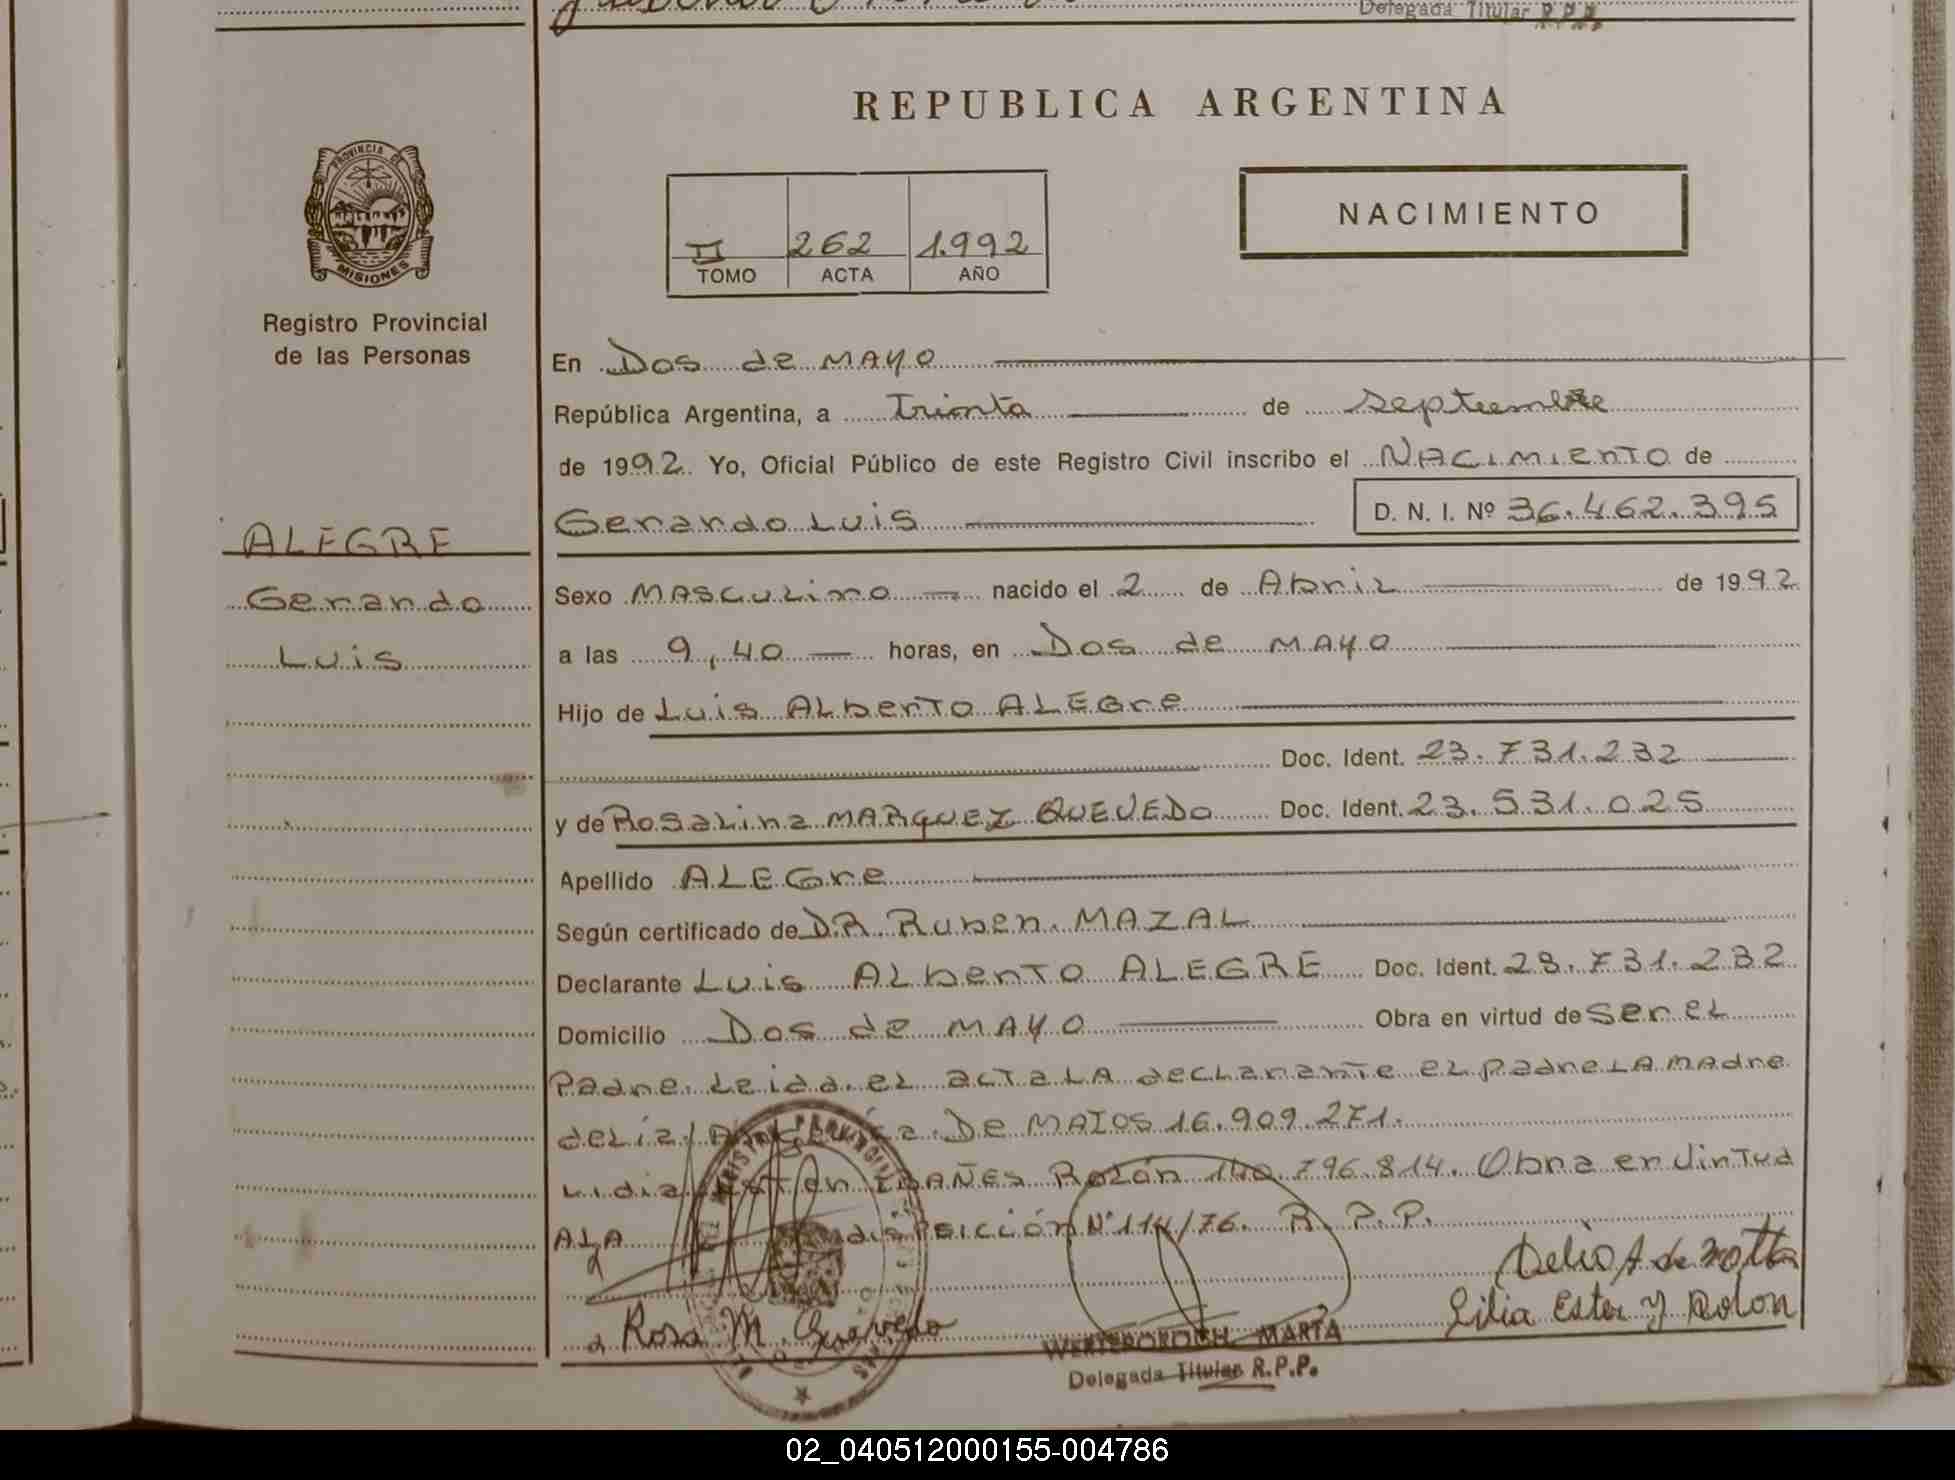 Delegada Titular R.P.P.
REPUBLICA ARGENTINA
PROVINCIA DE
MISIONES
Registro Provincial
de las Personas
II 262 1.992
TOMO ACTA AÑO
NACIMIENTO
En Dos de MAYO
República Argentina, a Trinta de septiembre
de 1992. Yo, Oficial Público de este Registro Civil inscribo el NACIMIENTO de
Gerardo Luis D. N. I. Nº 36.462.395
ALEGRE
Gerardo
Luis
Sexo MASCULINO nacido el 2 de Abril de 1992
a las 9,40 horas, en Dos de MAYO
Hijo de Luis ALberTO ALEGre
Doc. Ident. 23.731.232
y de Rosalina MARQUEZ QUEVEDO Doc. Ident. 23.531.025
Apellido ALEGre
Según certificado de DR. Ruben. MAZAL
Declarante Luis ALberTO ALEGRE Doc. Ident. 23.731.232
Domicilio Dos de MAYO Obra en virtud de ser el
Padre. Leida. el acta LA declarante el padre LA madre
delia De MATOS 16.909.271.
Lidia Ester IBAÑEs Rolón 796.814. Obra en virtud
ALA disposición Nº 114/76. R. P. P.
Delia A de Motta
Lilia Ester Y Rolon
Rosa M. Quevedo
MARTA
Delegada Titular R.P.P.
02_040512000155-004786